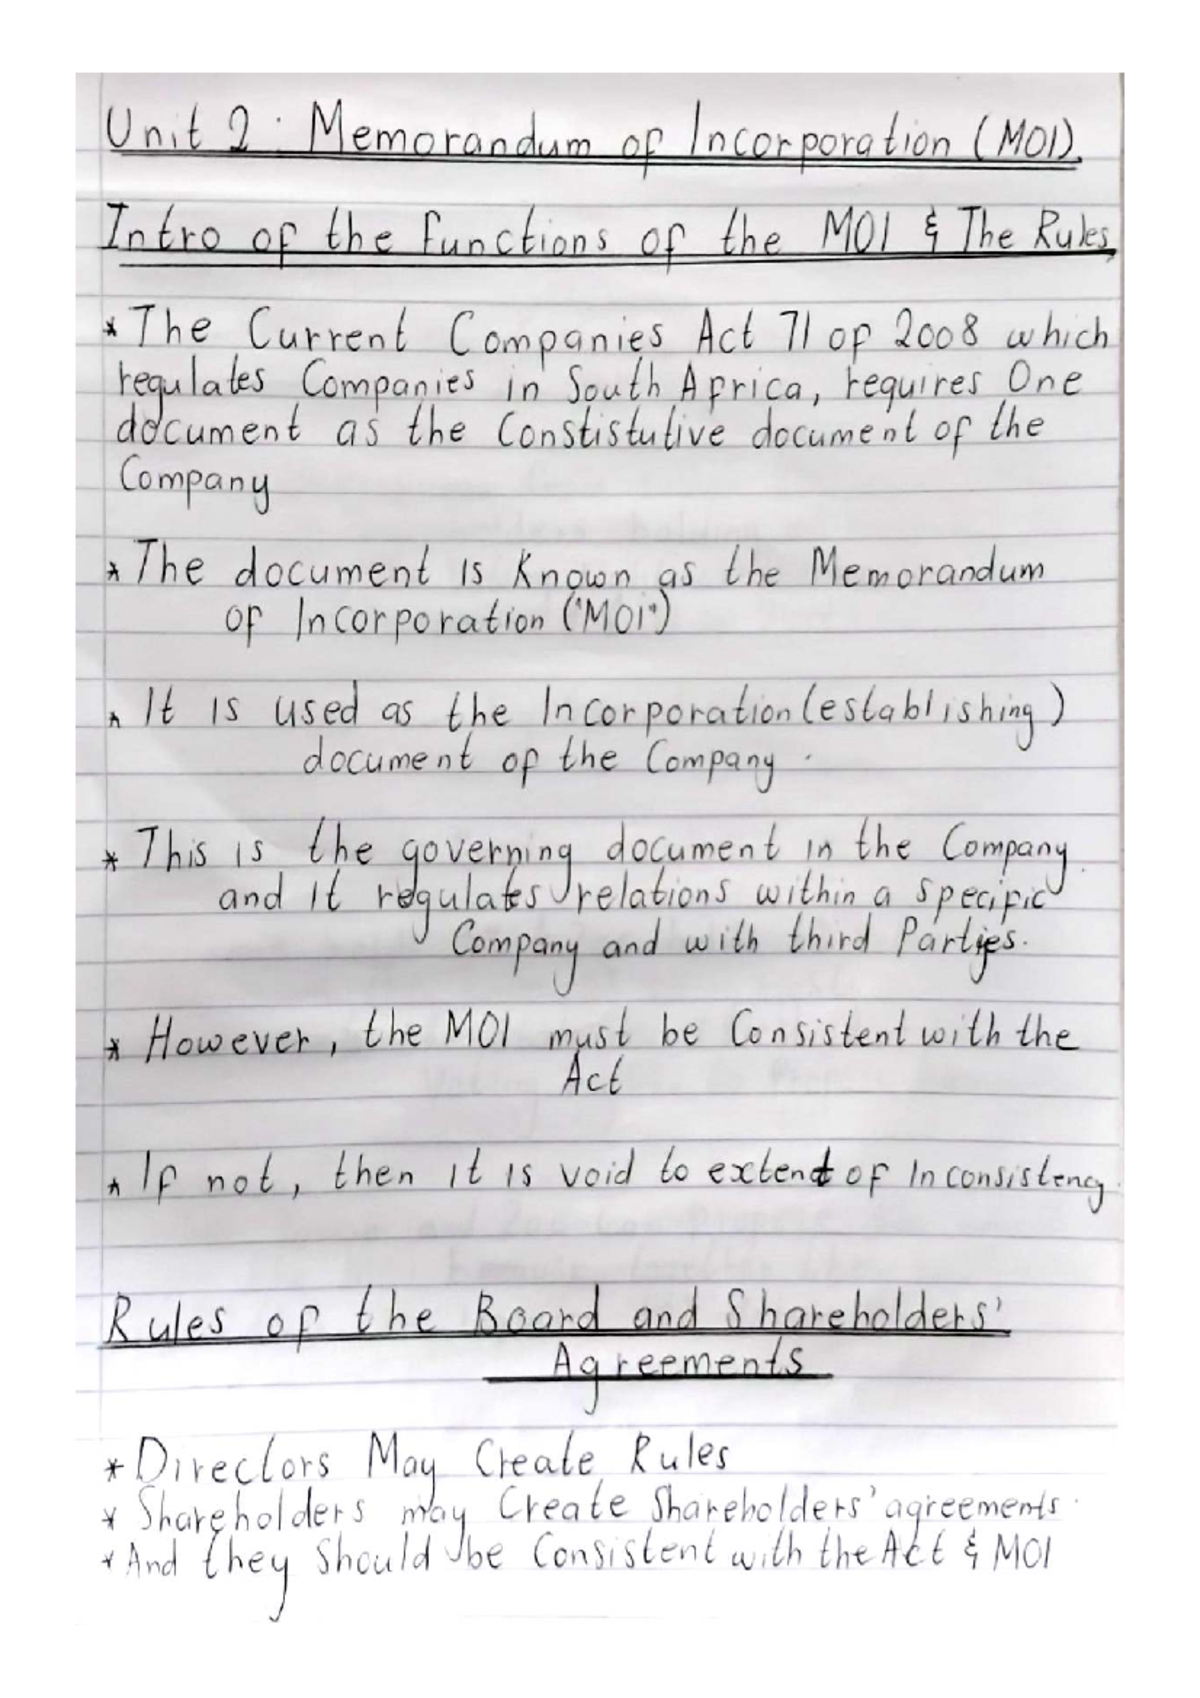 Unit 2: Memorandum of Incorporation (MOI).
Intro of the functions of the MOI & The Rules,
* The Current Companies Act 71 of 2008 which
regulates Companies in South Africa, requires One
document as the Constistutive document of the
Company
* The document is Known as the Memorandum
of Incorporation ("MOI")
* It is used as the Incorporation (establishing)
document of the Company.
* This is the governing document in the Company.
and it regulates relations within a specific
Company and with third Parties.
* However, the MOI must be Consistent with the
Act
* If not, then it is void to extent of Inconsistency.
Rules of the Board and Shareholders'
Agreements
* Directors May Create Rules
* Shareholders may Create Shareholders' agreements.
* And they Should be Consistent with the Act & MOI